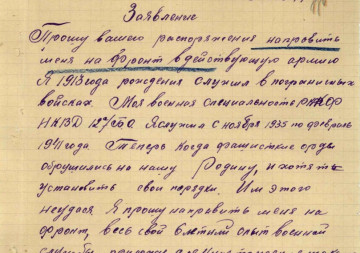 Заявление
Прошу вашего распоряжения направить
меня на фронт в действующую армию
Я 1913 года рождения служил в пограничных
войсках. Моя военная специальность
НКВД Я служил с ноября 1935 по февраль
1941 года Теперь когда фашистские орды
обрушились на нашу Родину, и хотят
установить свои порядки. Им этого
неудася. Я прошу направить меня на
фронт, весь свой 6 летний опыт военной